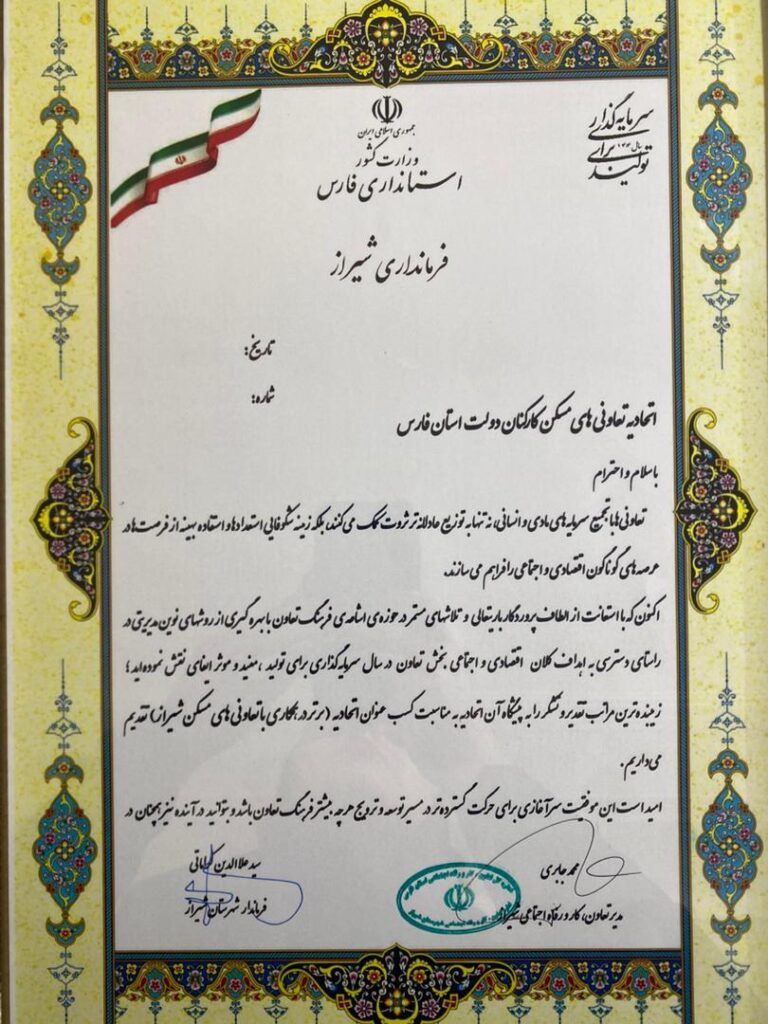 سرمایه گذاری
برای
تولید
جمهوری اسلامی ایران
وزارت کشور
استانداری فارس
فرمانداری شیراز
تاریخ:
شماره:
اتحادیه تعاونی های مسکن کارکنان دولت استان فارس
باسلام و احترام
تعاونی ها با تجمیع سرمایه های مادی و انسانی، نه تنها به توزیع عادلانه تر ثروت کمک می کنند، بلکه زمینه شکوفایی استعدادها و استفاده بهینه از فرصت ها در
عرصه های گوناگون اقتصادی و اجتماعی را فراهم می سازند.
اکنون که با استعانت از الطاف پروردگار باریتعالی و تلاشهای مستمر در حوزه ی اشاعه ی فرهنگ تعاون با بهره گیری از روشهای نوین مدیریتی در
راستای دسترسی به اهداف کلان اقتصادی و اجتماعی بخش تعاون در سال سرمایه گذاری برای تولید ، مفید و موثر ایفای نقش نموده اید ؛
زیبنده ترین مراتب تقدیر و تشکر را به پیشگاه آن اتحادیه به مناسبت کسب عنوان اتحادیه (برتر در همکاری با تعاونی های مسکن شیراز) تقدیم
می داریم .
امید است این موفقیت سرآغازی برای حرکت گسترده تر در مسیر توسعه و ترویج هر چه بیشتر فرهنگ تعاون باشد و بتوانید در آینده نیز همچنان در
محمد جابری
مدیر تعاون، کار و رفاه اجتماعی شیراز
سید علاالدین کراماتی
فرماندار شهرستان شیراز